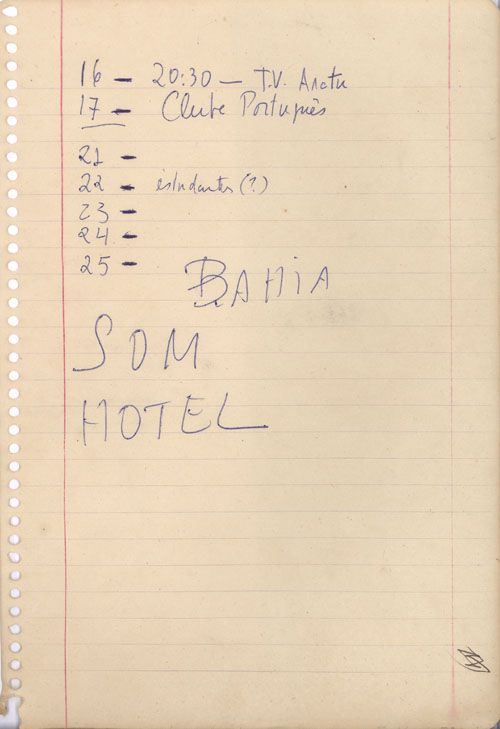 16 - 20:30 - T.V. Aratu
17 - Clube Português
21 -
22 - estudantes (?)
23 -
24 -
25 -
BAHIA
SOM
HOTEL